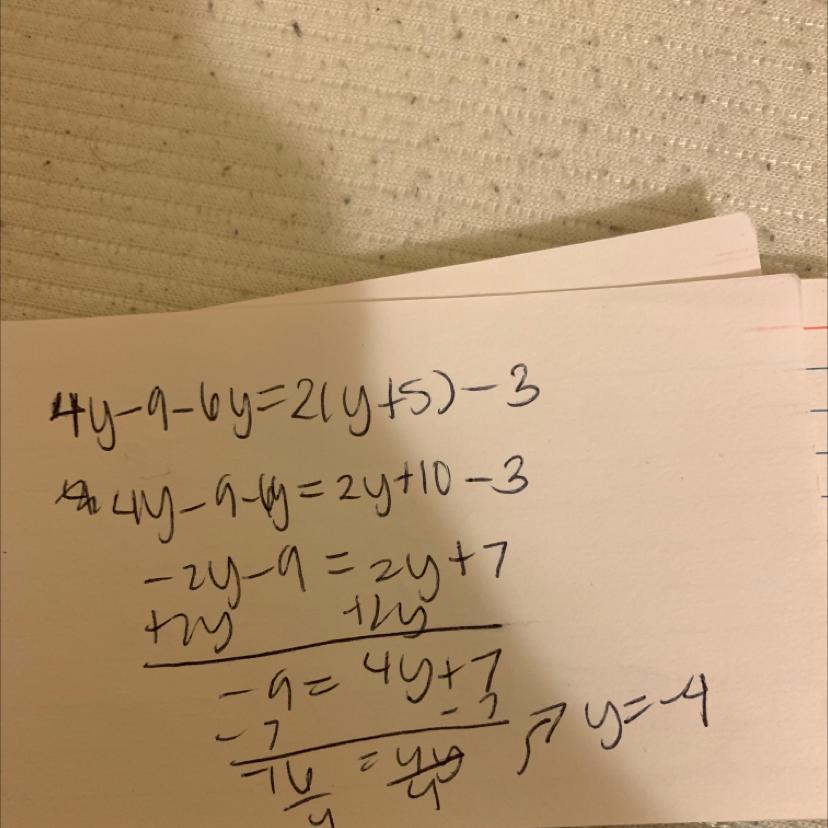 4y-9-6y=2(y+5)-3
4y-9-6y=2y+10-3
-2y-9=2y+7
+2y +2y
-9=4y+7
-7 -7 y=-4
-16 = 4y
4 4